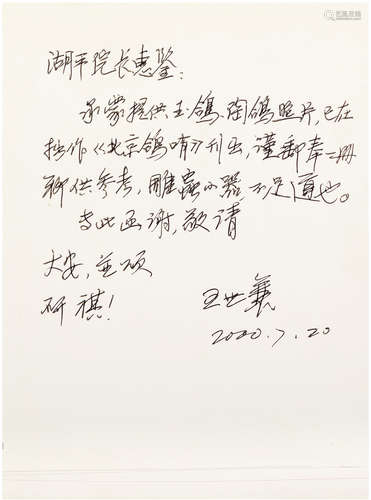 湖平院长惠鉴：
承蒙提供玉鸽、陶鸽照片，已在
拙作《北京鸽哨》刊出，谨邮奉二册
聊供参考，雕虫小器，不足道也。
专此函谢，敬请
大安，並颂
研祺！
王世襄
2000.7.20